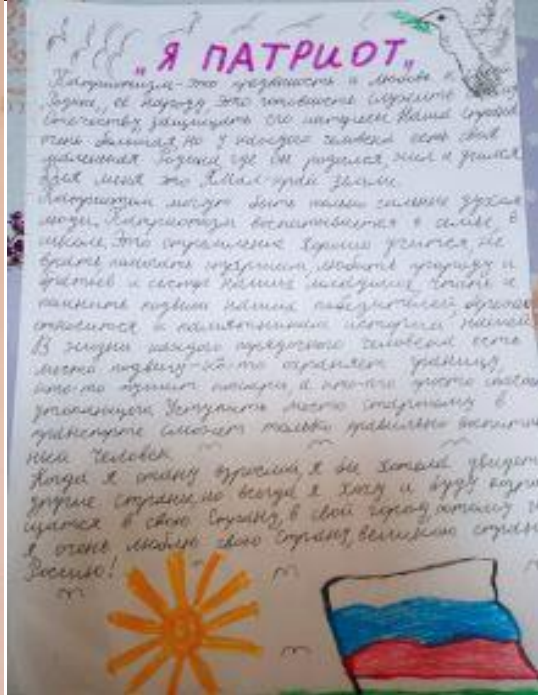 „Я ПАТРИОТ"
Патриотизм-это преданность и любовь к
Родине, её народу, это готовность служить
Отечеству, защищать его интересы. Наша страна
очень большая, но у каждого человека есть своя
маленькая Родина где он родился, жил и учился
Для меня это Ямал-край земли.
Патриотами могут быть только сильные духом
люди. Патриотизм воспитывается в семье, в
школе. Это стремление хорошо учится, не
врать, помогать старшим, любить природу и
братьев и сестер наших младших, чтить и
помнить подвиги наших победителей, бережно
относится к памятникам истории нашей
В жизни каждого порядочного человека есть
место подвигу-кто-то охраняет границу,
кто-то тушит пожары, а кто-то просто спасает
утопающего. Уступить место старшему в
транспорте сможет только правильно воспитан
ный человек
Когда я стану взрослой, я бы хотела увидеть
другие страны, но всегда я хочу и буду возра
щатся в свою Страну, в свой город, потому
я очень люблю свою Страну, великую страну
Россию!